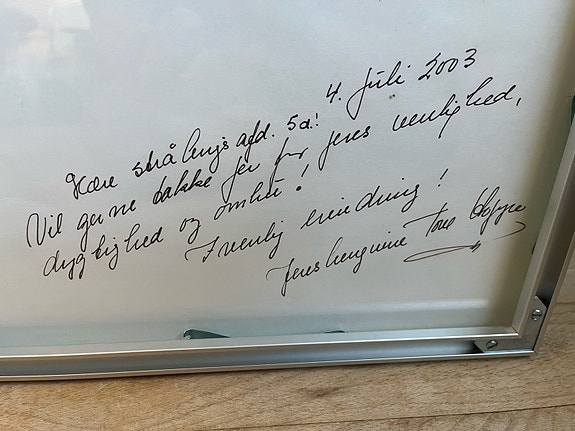 4. Juli 2003
Kære strålingsafd. 5a!
Vil gerne takke jer for jeres venlighed,
dygtighed og omhu!
I venlig erindring!
Jeres hengivne Tove